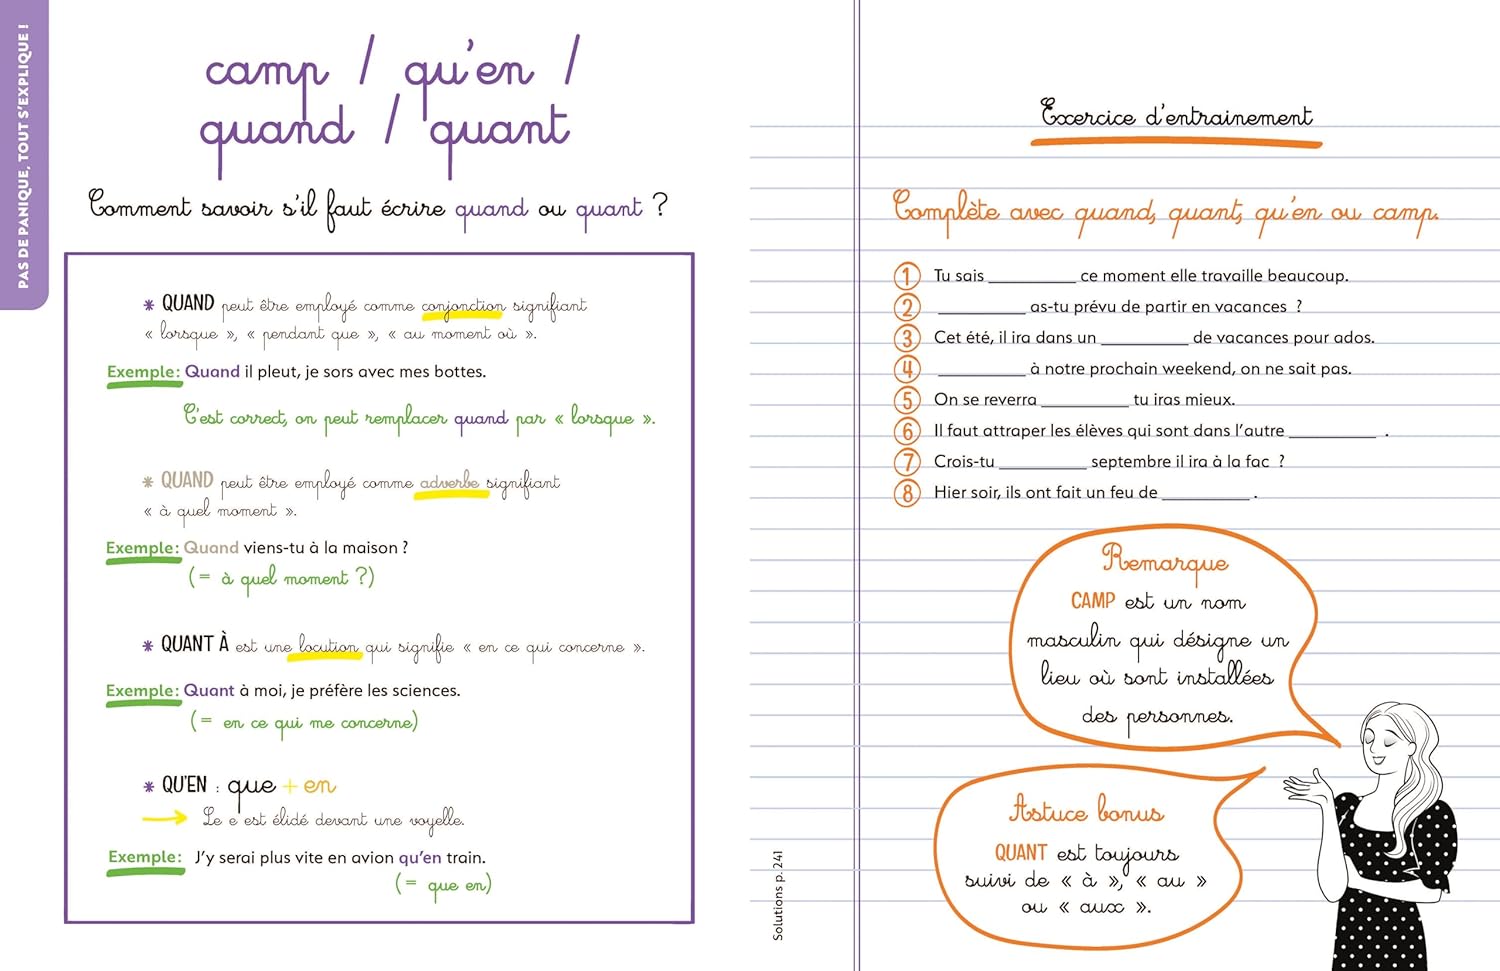 PAS DE PANIQUE, TOUT S'EXPLIQUE !
camp / qu'en /
quand / quant
Comment savoir s'il faut écrire quand ou quant ?
* QUAND peut être employé comme conjonction signifiant
« lorsque », « pendant que », « au moment où ».
Exemple : Quand il pleut, je sors avec mes bottes.
C'est correct, on peut remplacer quand par « lorsque ».
* QUAND peut être employé comme adverbe signifiant
« à quel moment ».
Exemple : Quand viens-tu à la maison ?
(= à quel moment ?)
* QUANT À est une locution qui signifie « en ce qui concerne ».
Exemple : Quant à moi, je préfère les sciences.
(= en ce qui me concerne)
* QU'EN : que + en
→ Le e est élidé devant une voyelle.
Exemple : J'y serai plus vite en avion qu'en train.
(= que en)
Exercice d'entrainement
Complète avec quand, quant, qu'en ou camp.
1 Tu sais __________ ce moment elle travaille beaucoup.
2 __________ as-tu prévu de partir en vacances ?
3 Cet été, il ira dans un __________ de vacances pour ados.
4 __________ à notre prochain weekend, on ne sait pas.
5 On se reverra __________ tu iras mieux.
6 Il faut attraper les élèves qui sont dans l'autre __________ .
7 Crois-tu __________ septembre il ira à la fac ?
8 Hier soir, ils ont fait un feu de __________ .
Remarque
CAMP est un nom
masculin qui désigne un
lieu où sont installées
des personnes.
Astuce bonus
QUANT est toujours
suivi de « à », « au »
ou « aux ».
Solutions p. 241